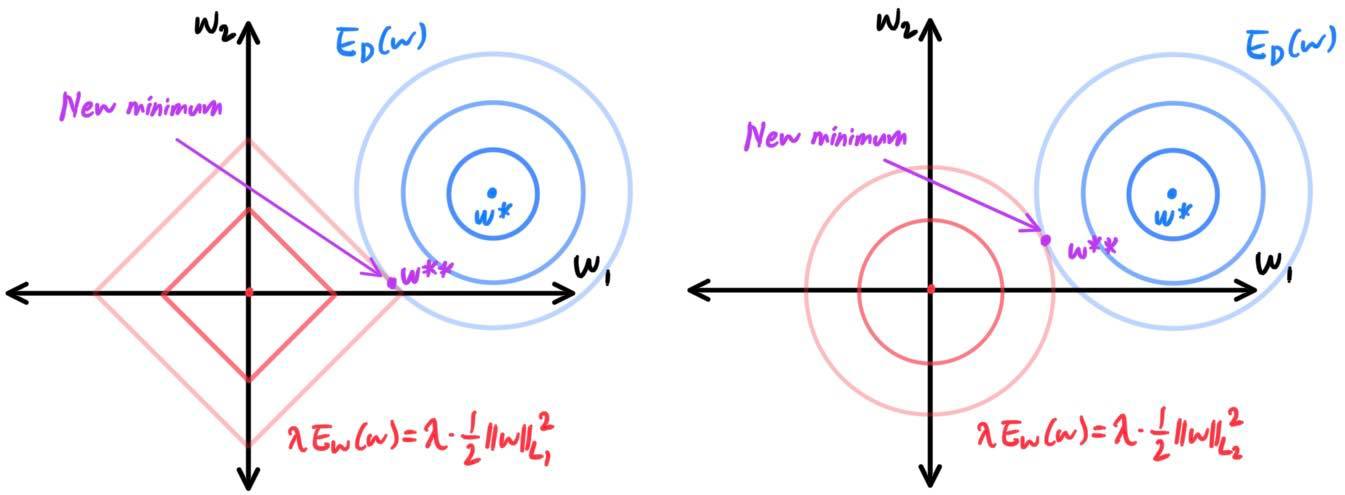 W₂
E_D(w)
New minimum
w*
w**
W₁
λE_W(w) = λ · 1/2 ||w||²_L₁
W₂
E_D(w)
New minimum
w*
w**
W₁
λE_W(w) = λ · 1/2 ||w||²_L₂